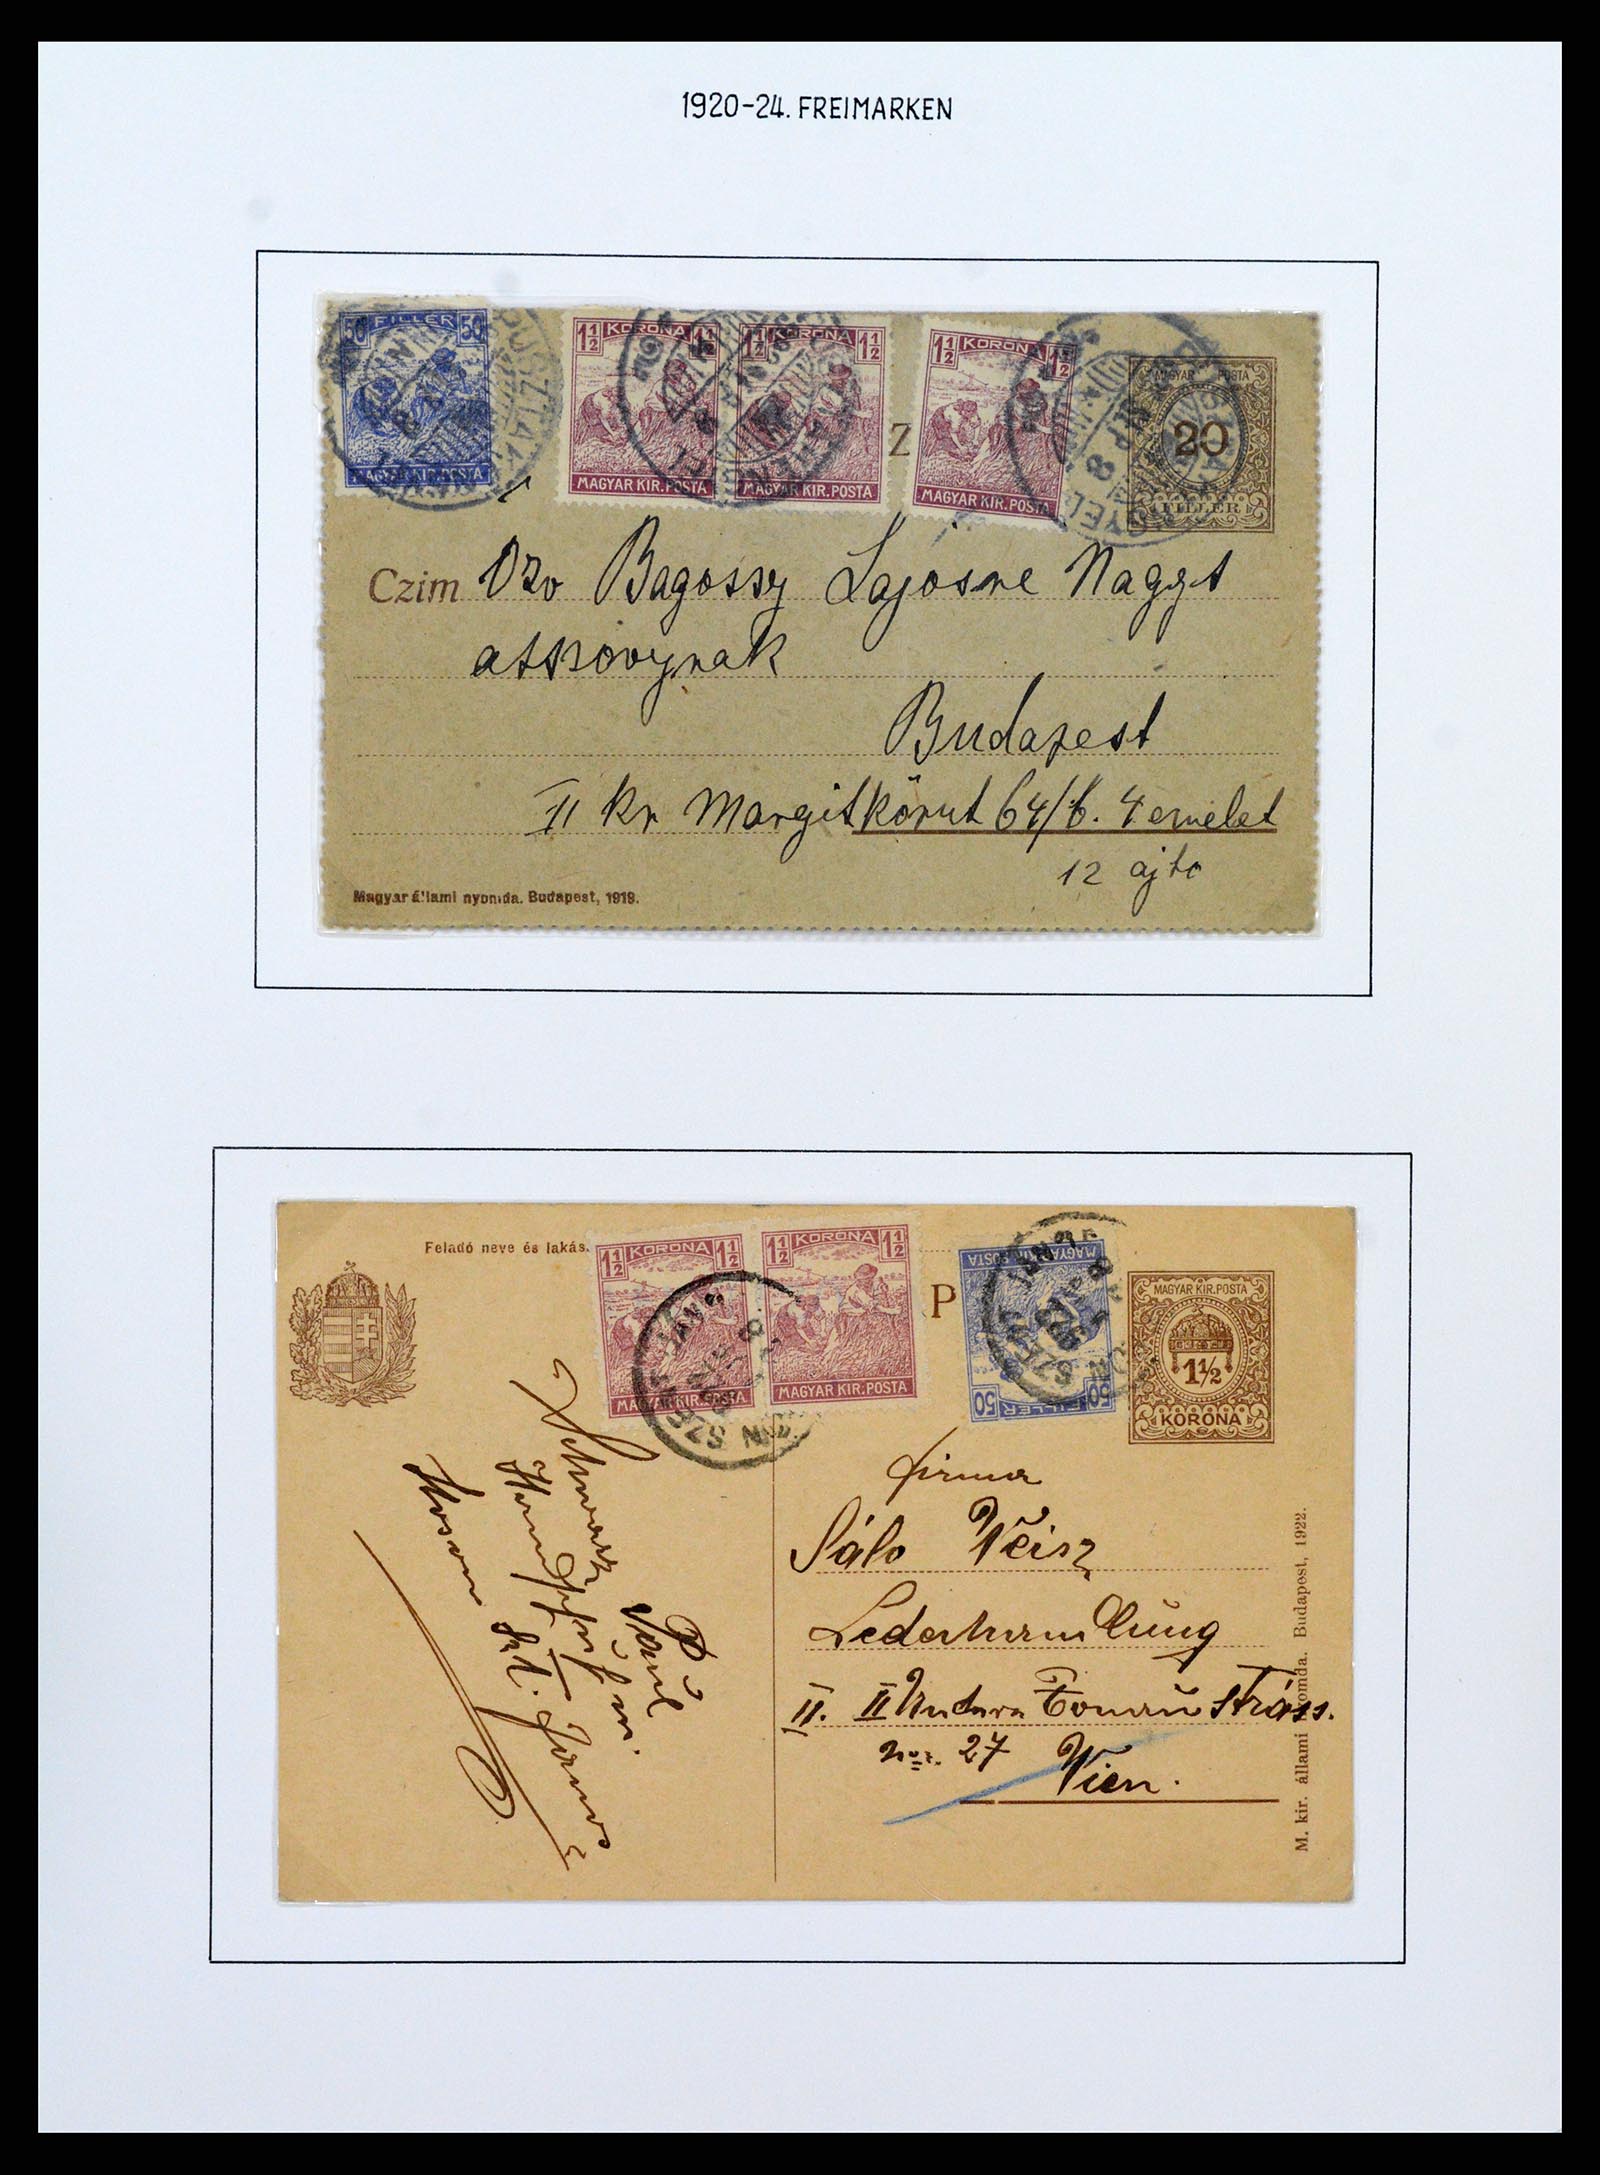 1920-24. FREIMARKEN
50 FILLÉR 50
MAGYAR KIR. POSTA
1½ KORONA 1½
MAGYAR KIR. POSTA
1½ KORONA 1½
MAGYAR KIR. POSTA
Z
1½ KORONA 1½
MAGYAR KIR. POSTA
MAGYAR POSTA
20
FILLÉR
Czim Özv Bagossy Lajosne Nagys
asszonynak
Budapest
II kr Margitkörut 64/b. 4 emelet
12 ajto
Magyar állami nyomda. Budapest, 1919.
Feladó neve és lakás
1½ KORONA 1½
MAGYAR KIR. POSTA
1½ KORONA 1½
MAGYAR KIR. POSTA
P
MAGYAR KIR. POSTA
50 FILLÉR 50
MAGYAR KIR. POSTA
1½
KORONA
Paul
Moson Szt. János
firma
Sálo Weisz
Lederhandlung
II. II Untere Donau Stráss.
27
Wien.
M. kir. állami nyomda. Budapest, 1922.